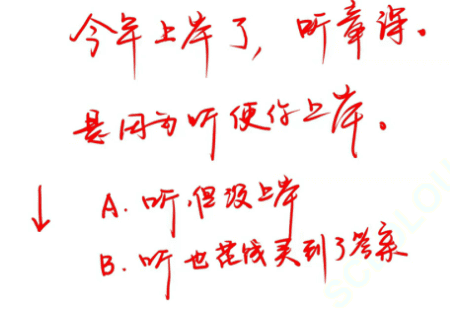 今年上岸了，听章译。
是因为听使你上岸。
↓ A. 听，但没上岸
B. 听也花钱买到了答案